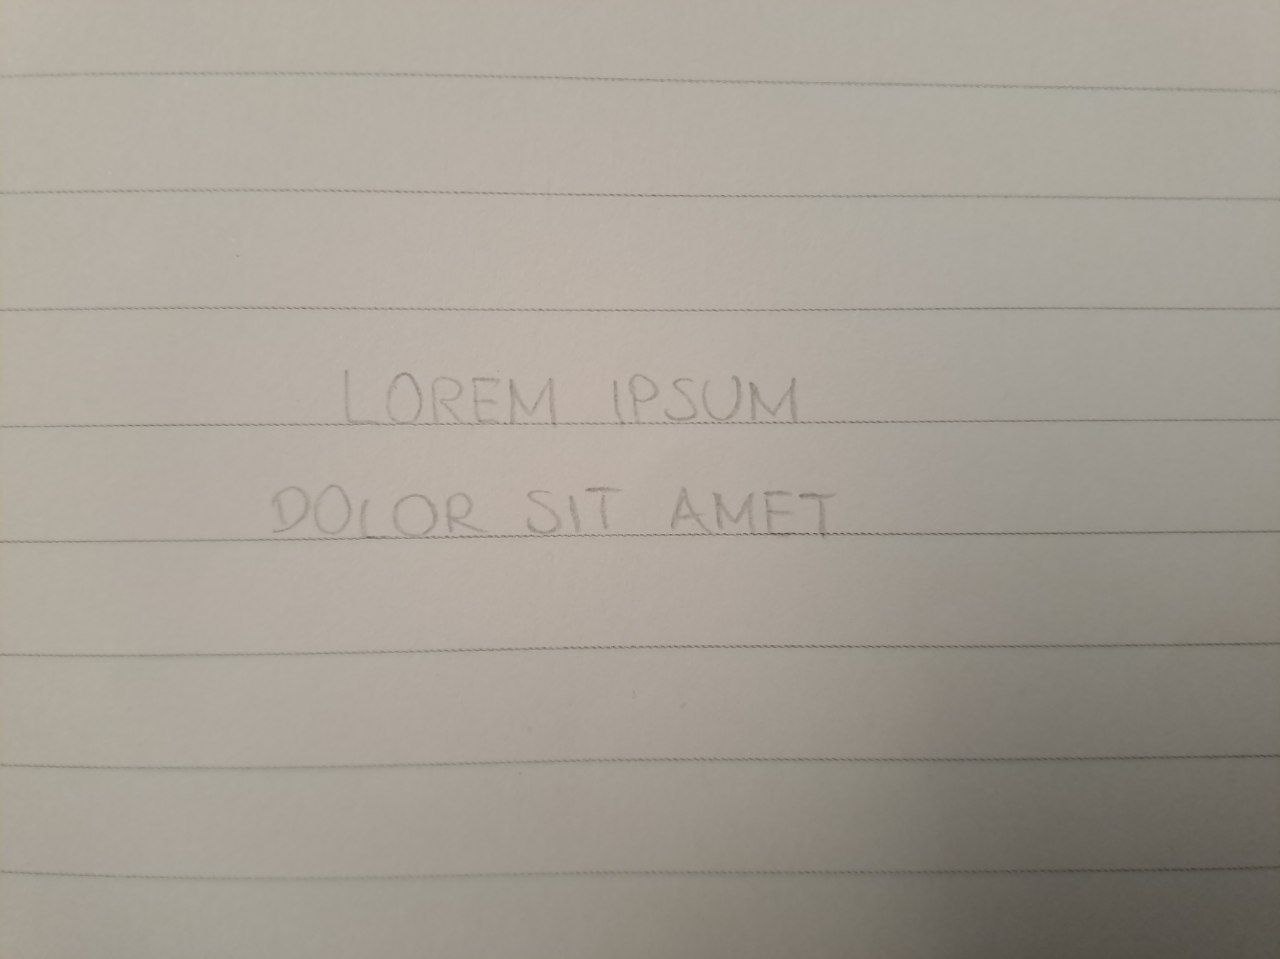 LOREM IPSUM
DOLOR SIT AMET